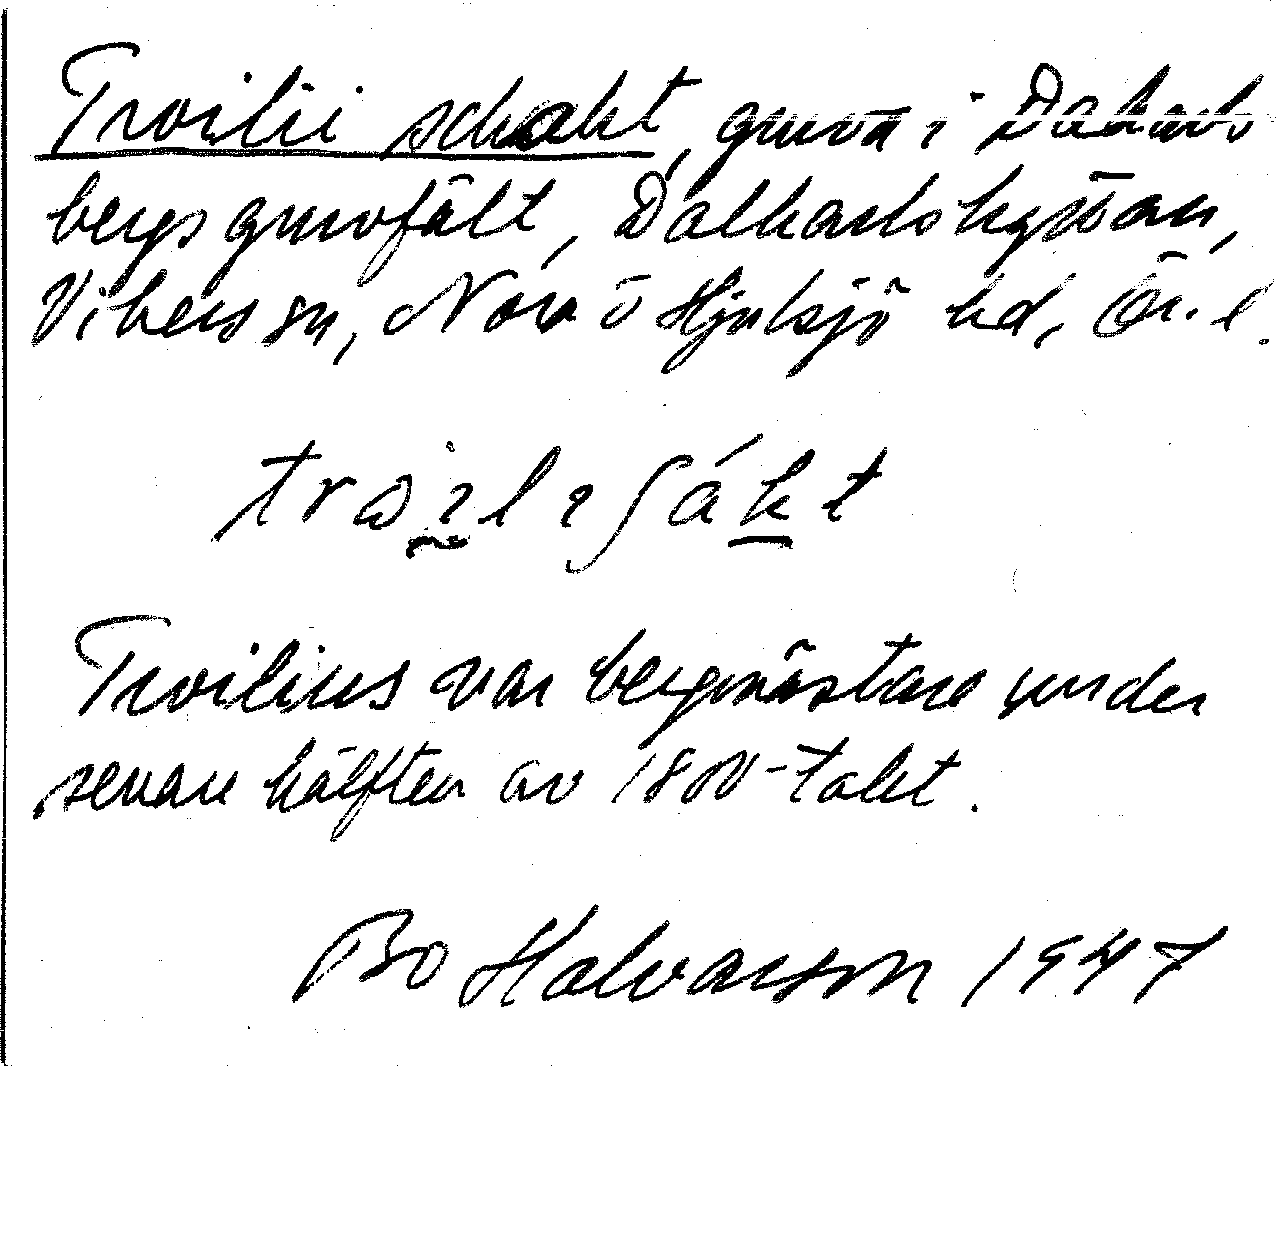 Troilii schakt, gruva i Dalkarls
bergs gruvfält, Dalkarlshyttan,
Vikers sn, Nora o Hjulsjö bd, Ör. l.
trω̨ılıʃákt
Troilius var bergmästare under
senare hälften av 1800-talet.
Bo Halvarson 1947